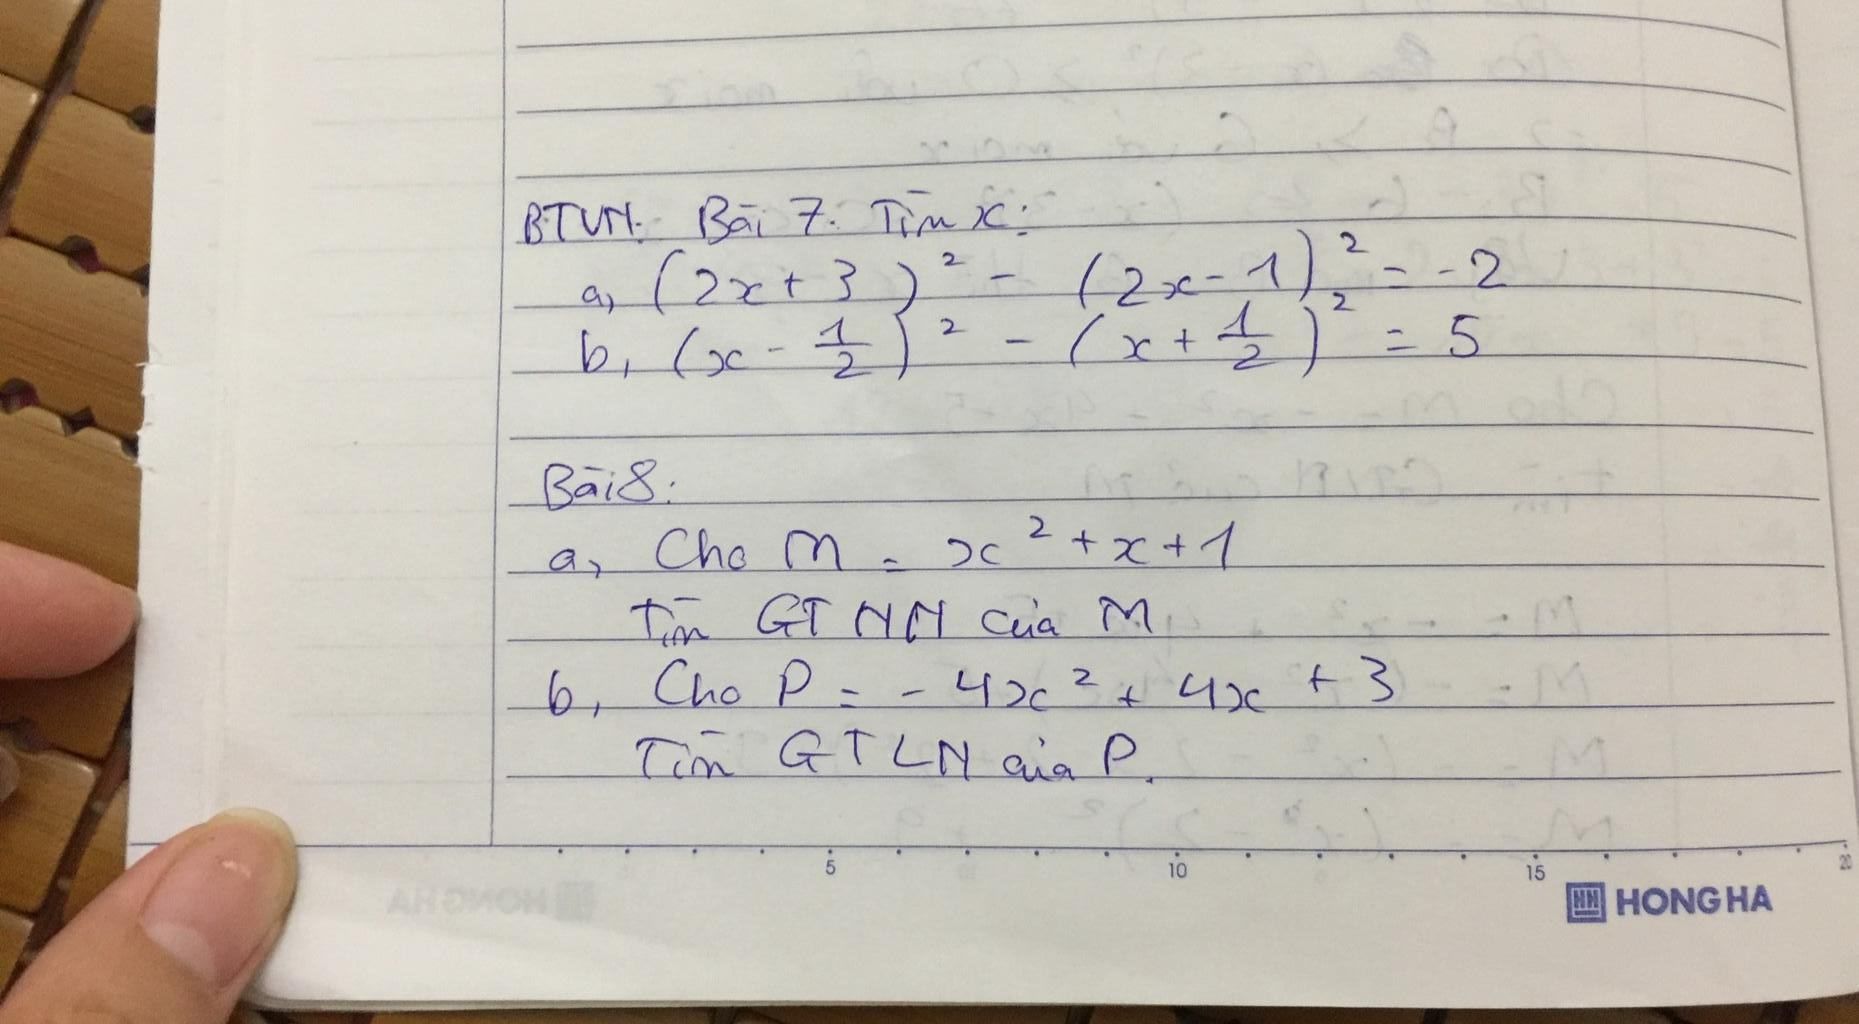 BTVN: Bài 7. Tìm x:
a, (2x + 3)² - (2x - 1)² = -2
b, (x - 1/2)² - (x + 1/2)² = 5
Bài 8:
a, Cho M = x² + x + 1
Tìm GTNN của M
b, Cho P = - 4x² + 4x + 3
Tìm GTLN của P.
5 10 15 20
HONG HA